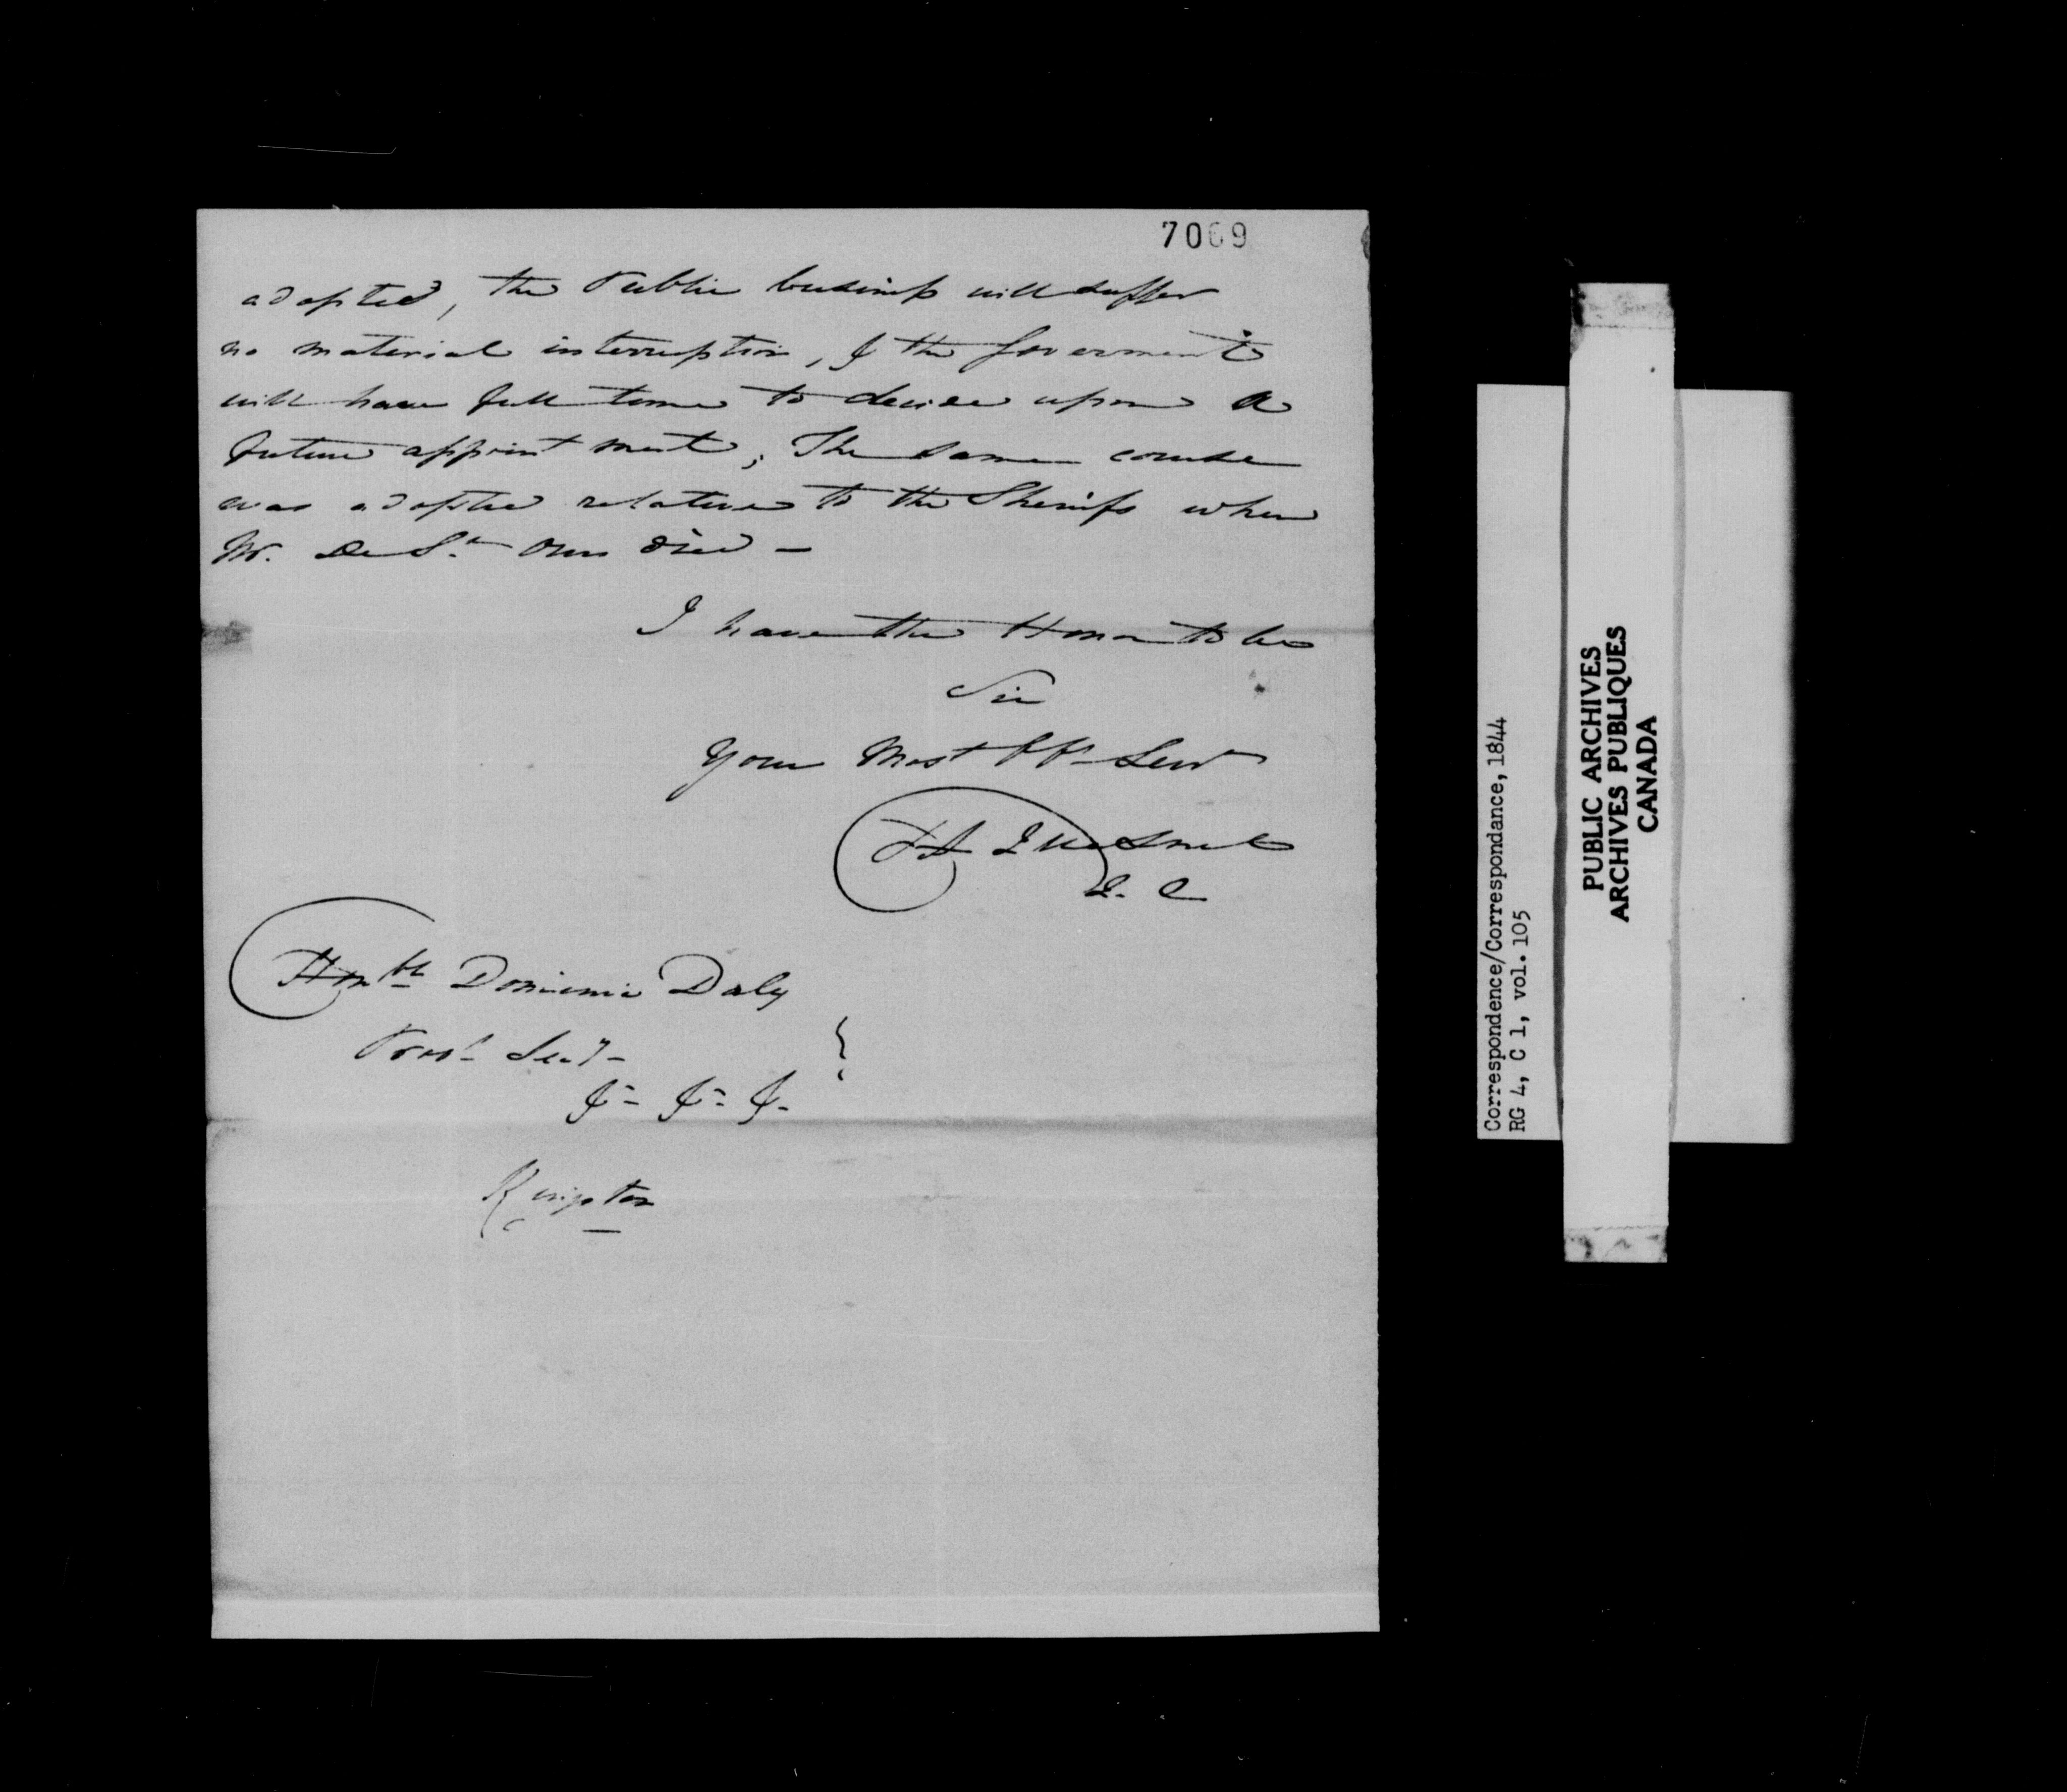 7069
adopted, the Public business will suffer
no material interruption, & the Goverment
will have full time to decide upon a
future appointment; The same course
was adopted relative to the Sheriffs when
Mr. De St. Ours died -
I have the Honor to be
Sir
Your Most Servt
F A Quesnel
Q. C
Honble Dominic Daly
Provl Secy -
&- &- &-
Kingston
Correspondence/Correspondance, 1844
RG 4, C 1, vol. 105
PUBLIC ARCHIVES
ARCHIVES PUBLIQUES
CANADA